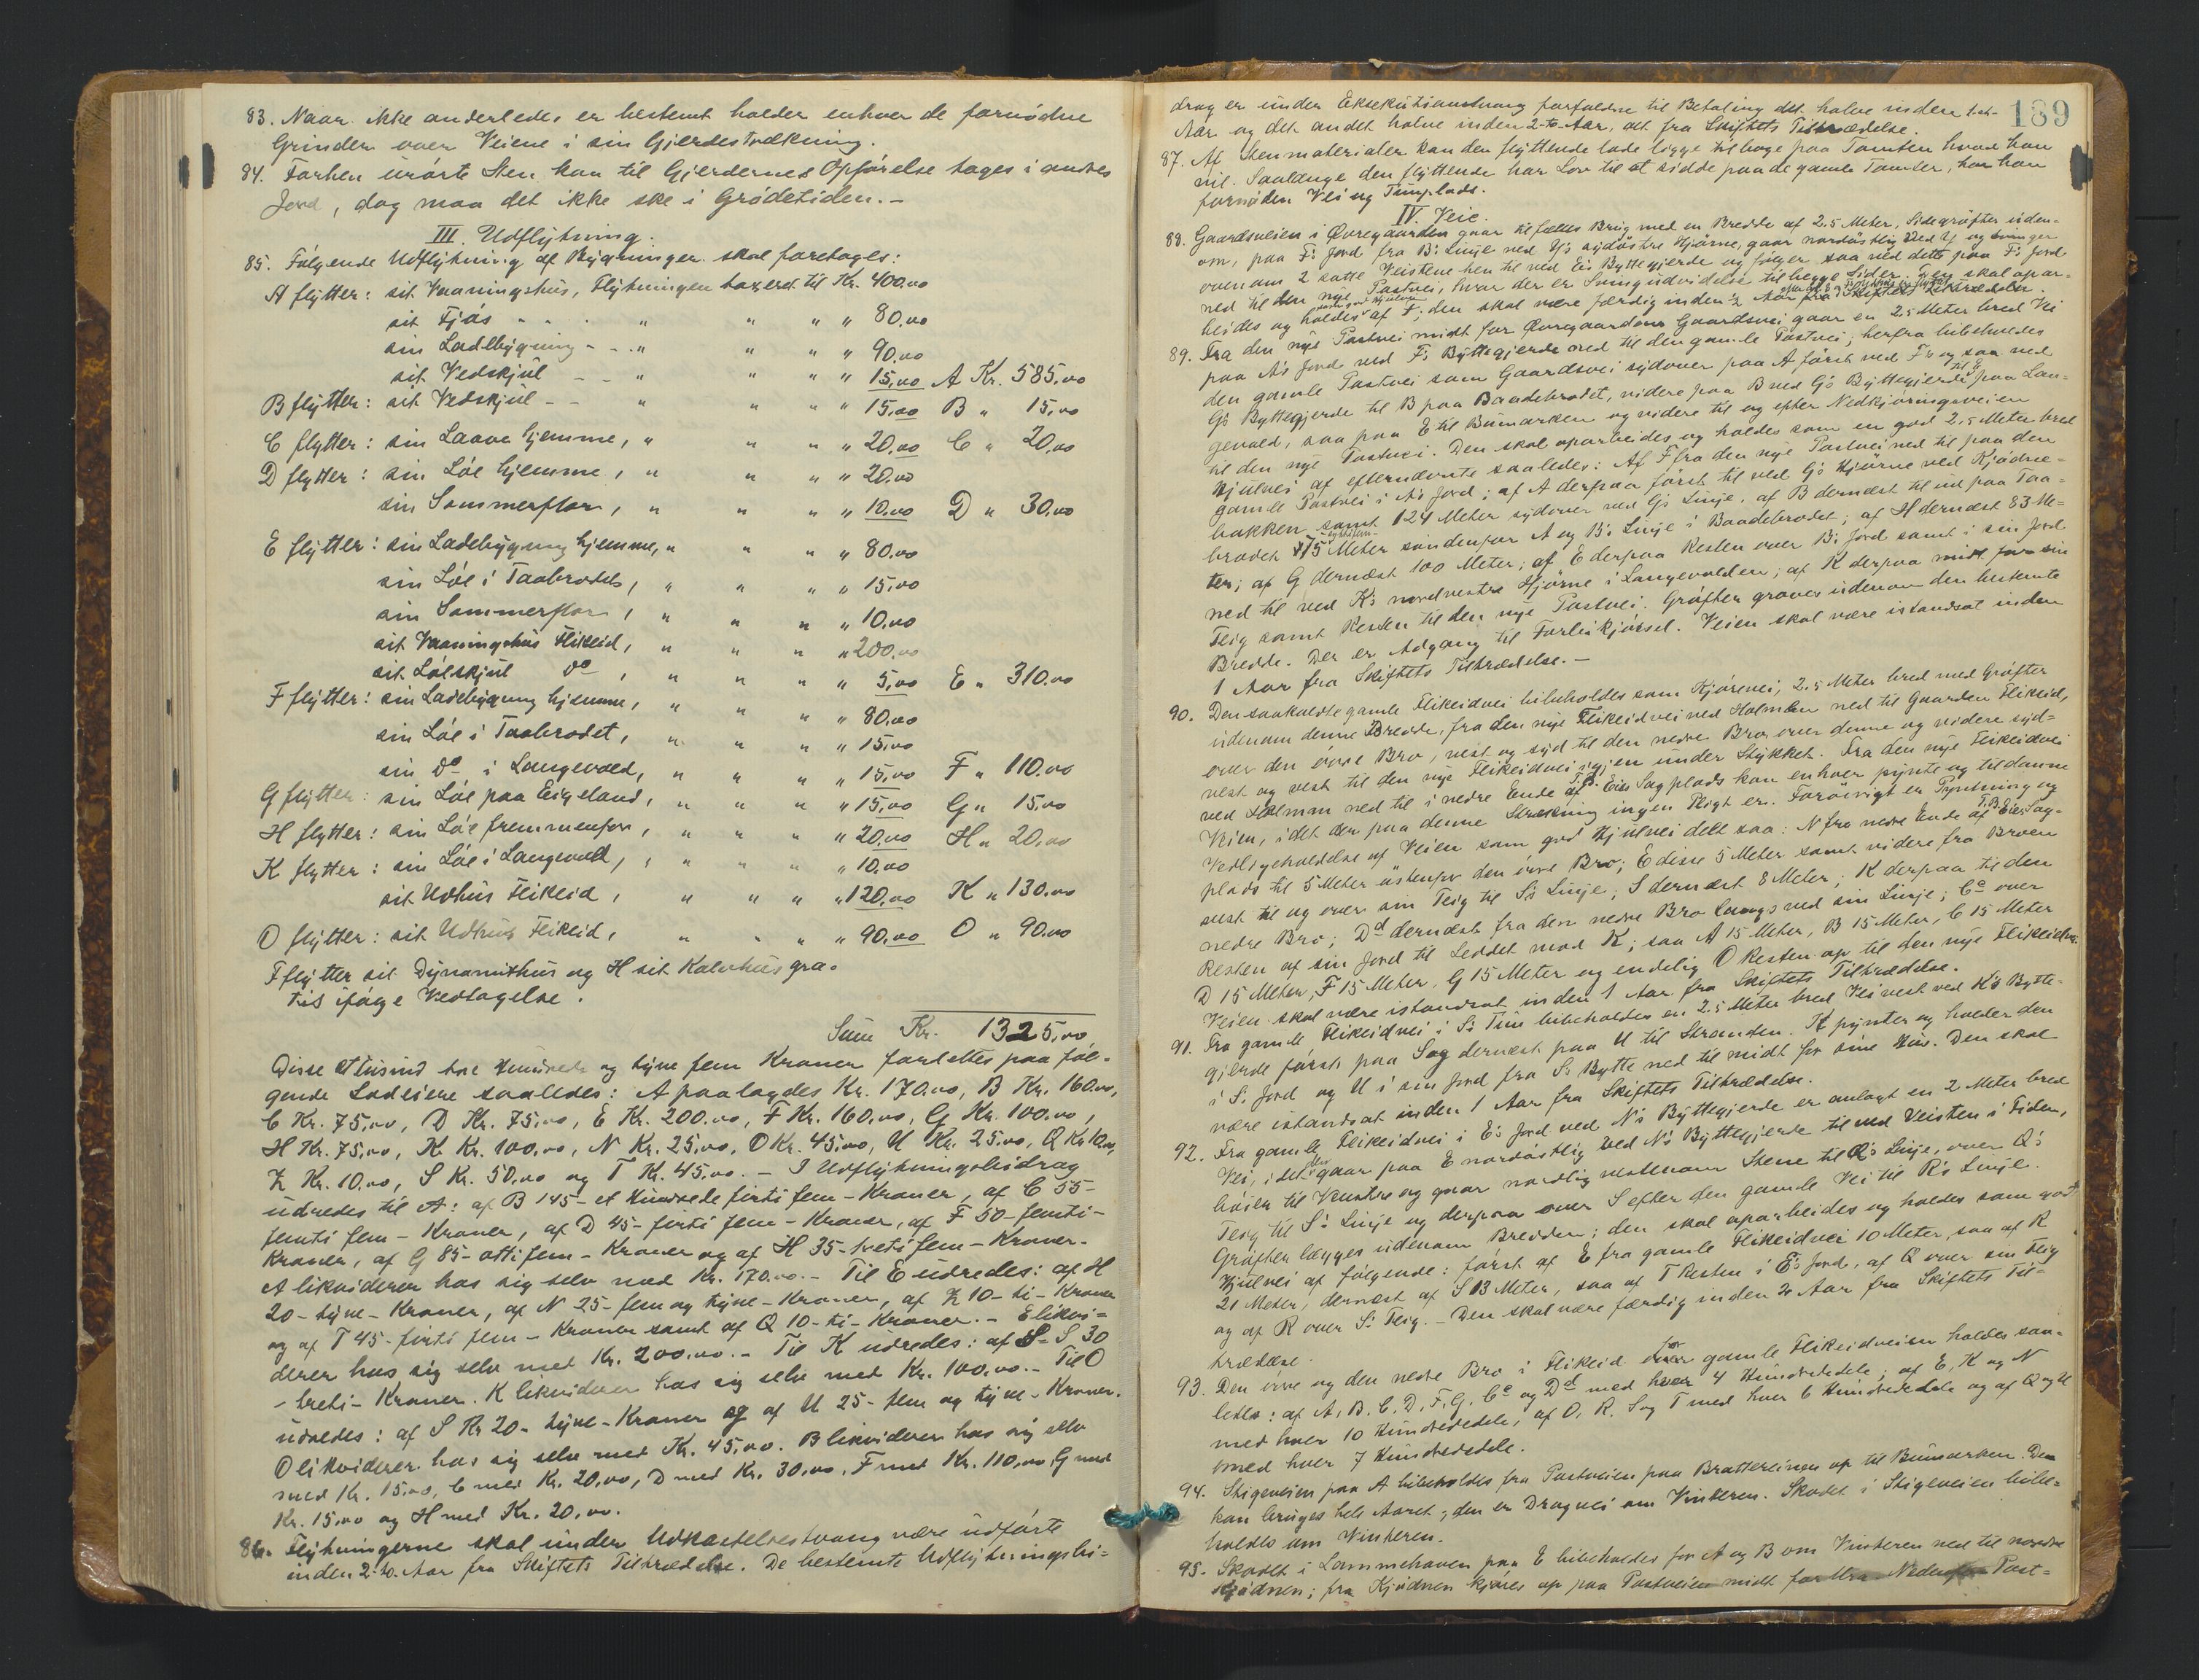 83. Naar ikke anderledes er bestemt holder enhver de fornødne
Grinder over Veiene i sin Gjerdestrækning.
84. Forhen urørte Sten kan til Gjerdernes Opførelse tages i andres
Jord, dog maa det ikke ske i Grødetiden. -
III. Udflytning.
85. Følgende Udflytning af Bygninger skal foretages:
A flytter: sit Vaaningshus, Flytningen taxeret til Kr. 400.00
sit Fjøs - - - " " " " 80.00
sin Ladebygning - - - " " " " 90.00
sit Vedskjul - - " " " " 15.00 A Kr. 585.00
B flytter: sit Vedskjul - - " " " " 15.00 B " 15.00
C flytter: sin Laave hjemme, " " " " 20.00 C " 20.00
D flytter: sin Løe hjemme, " " " " 20.00
sin Sommerflor, " " " " 10.00 D " 30.00
E flytter: sin Ladebygning hjemme, " " " " 80.00
sin Løe i Taabrodet, " " " " 15.00
sin Sommerflor, " " " " 10.00
sit Vaaningshus Flikeid, " " " " 200.00
sit Løeskjul do, " " " " 5.00 E " 310.00
F flytter: sin Ladebygning hjemme, " " " " 80.00
sin Løe i Taabrodet, " " " " 15.00
sin do i Langevold, " " " " 15.00 F " 110.00
G flytter: sin Løe paa Eigeland, " " " " 15.00 G " 15.00
H flytter: sin Løe fremmenfor, " " " " 20.00 H " 20.00
K flytter: sin Løe i Langevold, " " " " 10.00
sit Udhus Flikeid, " " " " 120.00 K " 130.00
O flytter: sit Udhus Flikeid, " " " " 90.00 O " 90.00
F flytter sit Dynamithus og H sit Kalvehus gra=
tis ifølge Vedtagelse.
Sum Kr. 1325.00
Disse et tusind tre Hundrede og tyve fem Kroner fordeltes paa føl-
gende Lodeiere saaledes: A paalagdes Kr. 170.00, B Kr. 160.00,
C Kr. 75.00, D Kr. 75.00, E Kr. 200.00, F Kr. 160.00, G Kr. 100.00,
H Kr. 75.00, K Kr. 100.00, N Kr. 25.00, O Kr. 45.00, U Kr. 25.00, Q Kr. 10.00,
Z Kr. 10.00, S Kr. 50.00 og T Kr. 45.00. - I Udflytningsbidrag
udredes til A: af B 145 - et Hundrede førti fem - Kroner, af C 55 -
femti fem - Kroner, af D 45 - førti fem - Kroner, af F 50 - femti -
Kroner, af G 85 - otti fem - Kroner og af H 35 - treti fem - Kroner.
A likviderer hos sig selv med Kr. 170.00. - Til E udredes: af H
20 - tyve - Kroner, af N 25 - fem og tyve - Kroner, af Z 10 - ti - Kroner
og af T 45 - førti fem - Kroner samt af Q 10 - ti - Kroner. - E likvi=
derer hos sig selv med Kr. 200.00. - Til K udredes: af S 30
- treti - Kroner. K likviderer hos sig selv med Kr. 100.00. - Til O
udredes: af S Kr 20 - tyve - Kroner og af U 25 - fem og tyve - Kroner.
O likviderer hos sig selv med Kr. 45.00. B likviderer hos sig selv
med Kr. 15.00, C med Kr. 20.00, D med Kr. 30.00, F med Kr. 110.00, G med
Kr. 15.00 og H med Kr. 20.00.
86. Flytningerne skal under Udkastelsestvang være udførte
inden 2 - to. Aar fra Skiftets Tiltrædelse. De bestemte Udflytningsbi=
189
drag er under Eksekutionstvang forfaldne til Betaling det halve inden 1 - et -
Aar og det andet halve inden 2 - to - Aar, alt fra Skiftets Tiltrædelse.
87. Af Stenmaterialer kan den flyttende lade ligge tilbage paa Tomten hvad han
vil. Saalænge den flyttende har Lov til at sidde paa de gamle Tomter, har han
fornøden Vei og Tunplads.
IV. Veie.
88. Gaardsveien i Øvregaarden gaar til fælles Brug med en Bredde af 2.5 Meter, Sidegrøfter uden-
om, paa F's Jord fra B's Linje ved G's sydøstre Hjørne, gaar nordøstlig ved G og svinger
ovenom 2 satte Veistene hen til ved E's Byttegjerde og følger saa ved dette paa F's Jord
ned til den nye Postvei, hvor der er Svingudvidelse til begge Sider. Veien skal opar-
beides og holdes af F; den skal være færdig inden 2 Aar fra Skiftets Tiltrædelse.
89. Fra den nye Postvei midt for Øvregaardens Gaardsvei gaar en 2.5 Meter bred Vei
paa A's Jord ved F's Byttegjerde ned til den gamle Postvei; herfra bibeholdes
den gamle Postvei som Gaardsvei sydover paa A først ved F's og saa ved
G's Byttegjerde til B paa Baadebrodet, videre paa B ved G's Byttegjerde til E paa Lan-
gevold, saa paa E til Bumarken og videre til og efter Nedkjøringsveien
til den nye Postvei. Den skal oparbeides og holdes som en god 2.5 Meter bred
Hjulvei af efternævnte saaledes: Af F fra den nye Postvei ned til paa den
gamle Postvei i A's Jord; af A derpaa først til ved G's Hjørne ved Kjødne-
bakken samt 124 Meter sydover ved G's Linje, af B dernæst til ud paa Taa-
brodet 75 Meter søndenfor A og B's Linje i Baadebrodet; af H dernæst 83 Me-
ter; af G dernæst 100 Meter; af E derpaa Resten over B's Jord samt i sin Jord
ned til ved K's nordvestre Hjørne i Langevolden; af K derpaa midt for sin
Teig samt Resten til den nye Postvei. Grøfter graves udenom den bestemte
Bredde. Der er Adgang til Forbikjørsel. Veien skal være istandsat inden
1 Aar fra Skiftets Tiltrædelse. -
90. Den saakaldte gamle Flikeidvei bibeholdes som Kjørevei, 2.5 Meter bred med Grøfter
udenom denne Bredde, fra den nye Flikeidvei ved Holmen ned til Gaarden Flikeid,
over den øvre Bro, vest og syd til den nedre Bro, over denne og videre syd-
vest og vest til den nye Flikeidvei igjen under Stykket. Fra den nye Flikeidvei
ved Holmen ned til i nedre Ende af T.B. Eies Sagplads kan enhver pynte og tildanne
Veien, idet der paa denne Strækning ingen Pligt er. Forøvrigt er Pyntning og
Vedligeholdelse af Veien som god Hjulvei delt saa: N fra nedre Ende af T.B. Eies Sag-
plads til 5 Meter østenfor den øvre Bro; E disse 5 Meter samt videre fra Broen
vest til og over sin Teig til S's Linje; S dernæst 8 Meter; K derpaa til den
nedre Bro; Dd dernæst fra den nedre Bro langs ved sin Linje; Ce over
Resten af sin Jord til Leddet mod K; saa A 15 Meter, B 15 Meter, C 15 Meter
D 15 Meter, F 15 Meter, G 15 Meter og endelig O Resten op til den nye Flikeidvei.
Veien skal være istandsat inden 1 Aar fra Skiftets Tiltrædelse.
91. Fra gamle Flikeidvei i S's Tun bibeholdes en 2.5 Meter bred Vei vest ved K's Bytte-
gjerde først paa S og dernæst paa U til Stranden. K pynter og holder den
i S's Jord og U i sin Jord fra S's Bytte ned til midt for sine Hus. Den skal
være istandsat inden 1 Aar fra Skiftets Tiltrædelse.
92. Fra gamle Flikeidvei i E's Jord ved N's Byttegjerde er anlagt en 2 Meter bred
Vei, idet den gaar paa E nordøstlig ved N's Byttegjerde til ved Veisten i Siden,
bøier til Venstre og gaar nordlig vestenom Stene til Q's Linje, over Q's
Teig til S's Linje og derpaa over S efter den gamle Vei til R's Linje.
Grøfter lægges udenom Bredden; den skal oparbeides og holdes som god
Hjulvei af følgende: først af E fra gamle Flikeidvei 10 Meter, saa af R
21 Meter, dernæst af S 13 Meter, saa af T Resten i E's Jord, af Q over sin Teig
og af R over S's Teig. - Den skal være færdig inden 2 Aar fra Skiftets Til-
trædelse.
93. Den øvre og den nedre Bro i Flikeid for gamle Flikeidveien holdes saa-
ledes: af A, B, C, D, F, G, Ce og Dd med hver 4 Hundrededele; af E, K og N
med hver 10 Hundrededele, af O, R, S og T med hver 6 Hundrededele og af Q og U
med hver 7 Hundrededele.
94. Stigeveien paa A bibeholdes fra Postveien paa Bratterlinen op til Bumarken. Den
kan bruges hele Aaret; den er Dragvei om Vinteren. Skodet i Stigeveien bibe-
holdes om Vinteren.
95. Skodet i Lommehaven paa E bibeholdes for A og B om Vinteren ned til nordre
Kjødnen; fra Kjødnen kjøres op paa Postveien midt for Nedenfor Post=